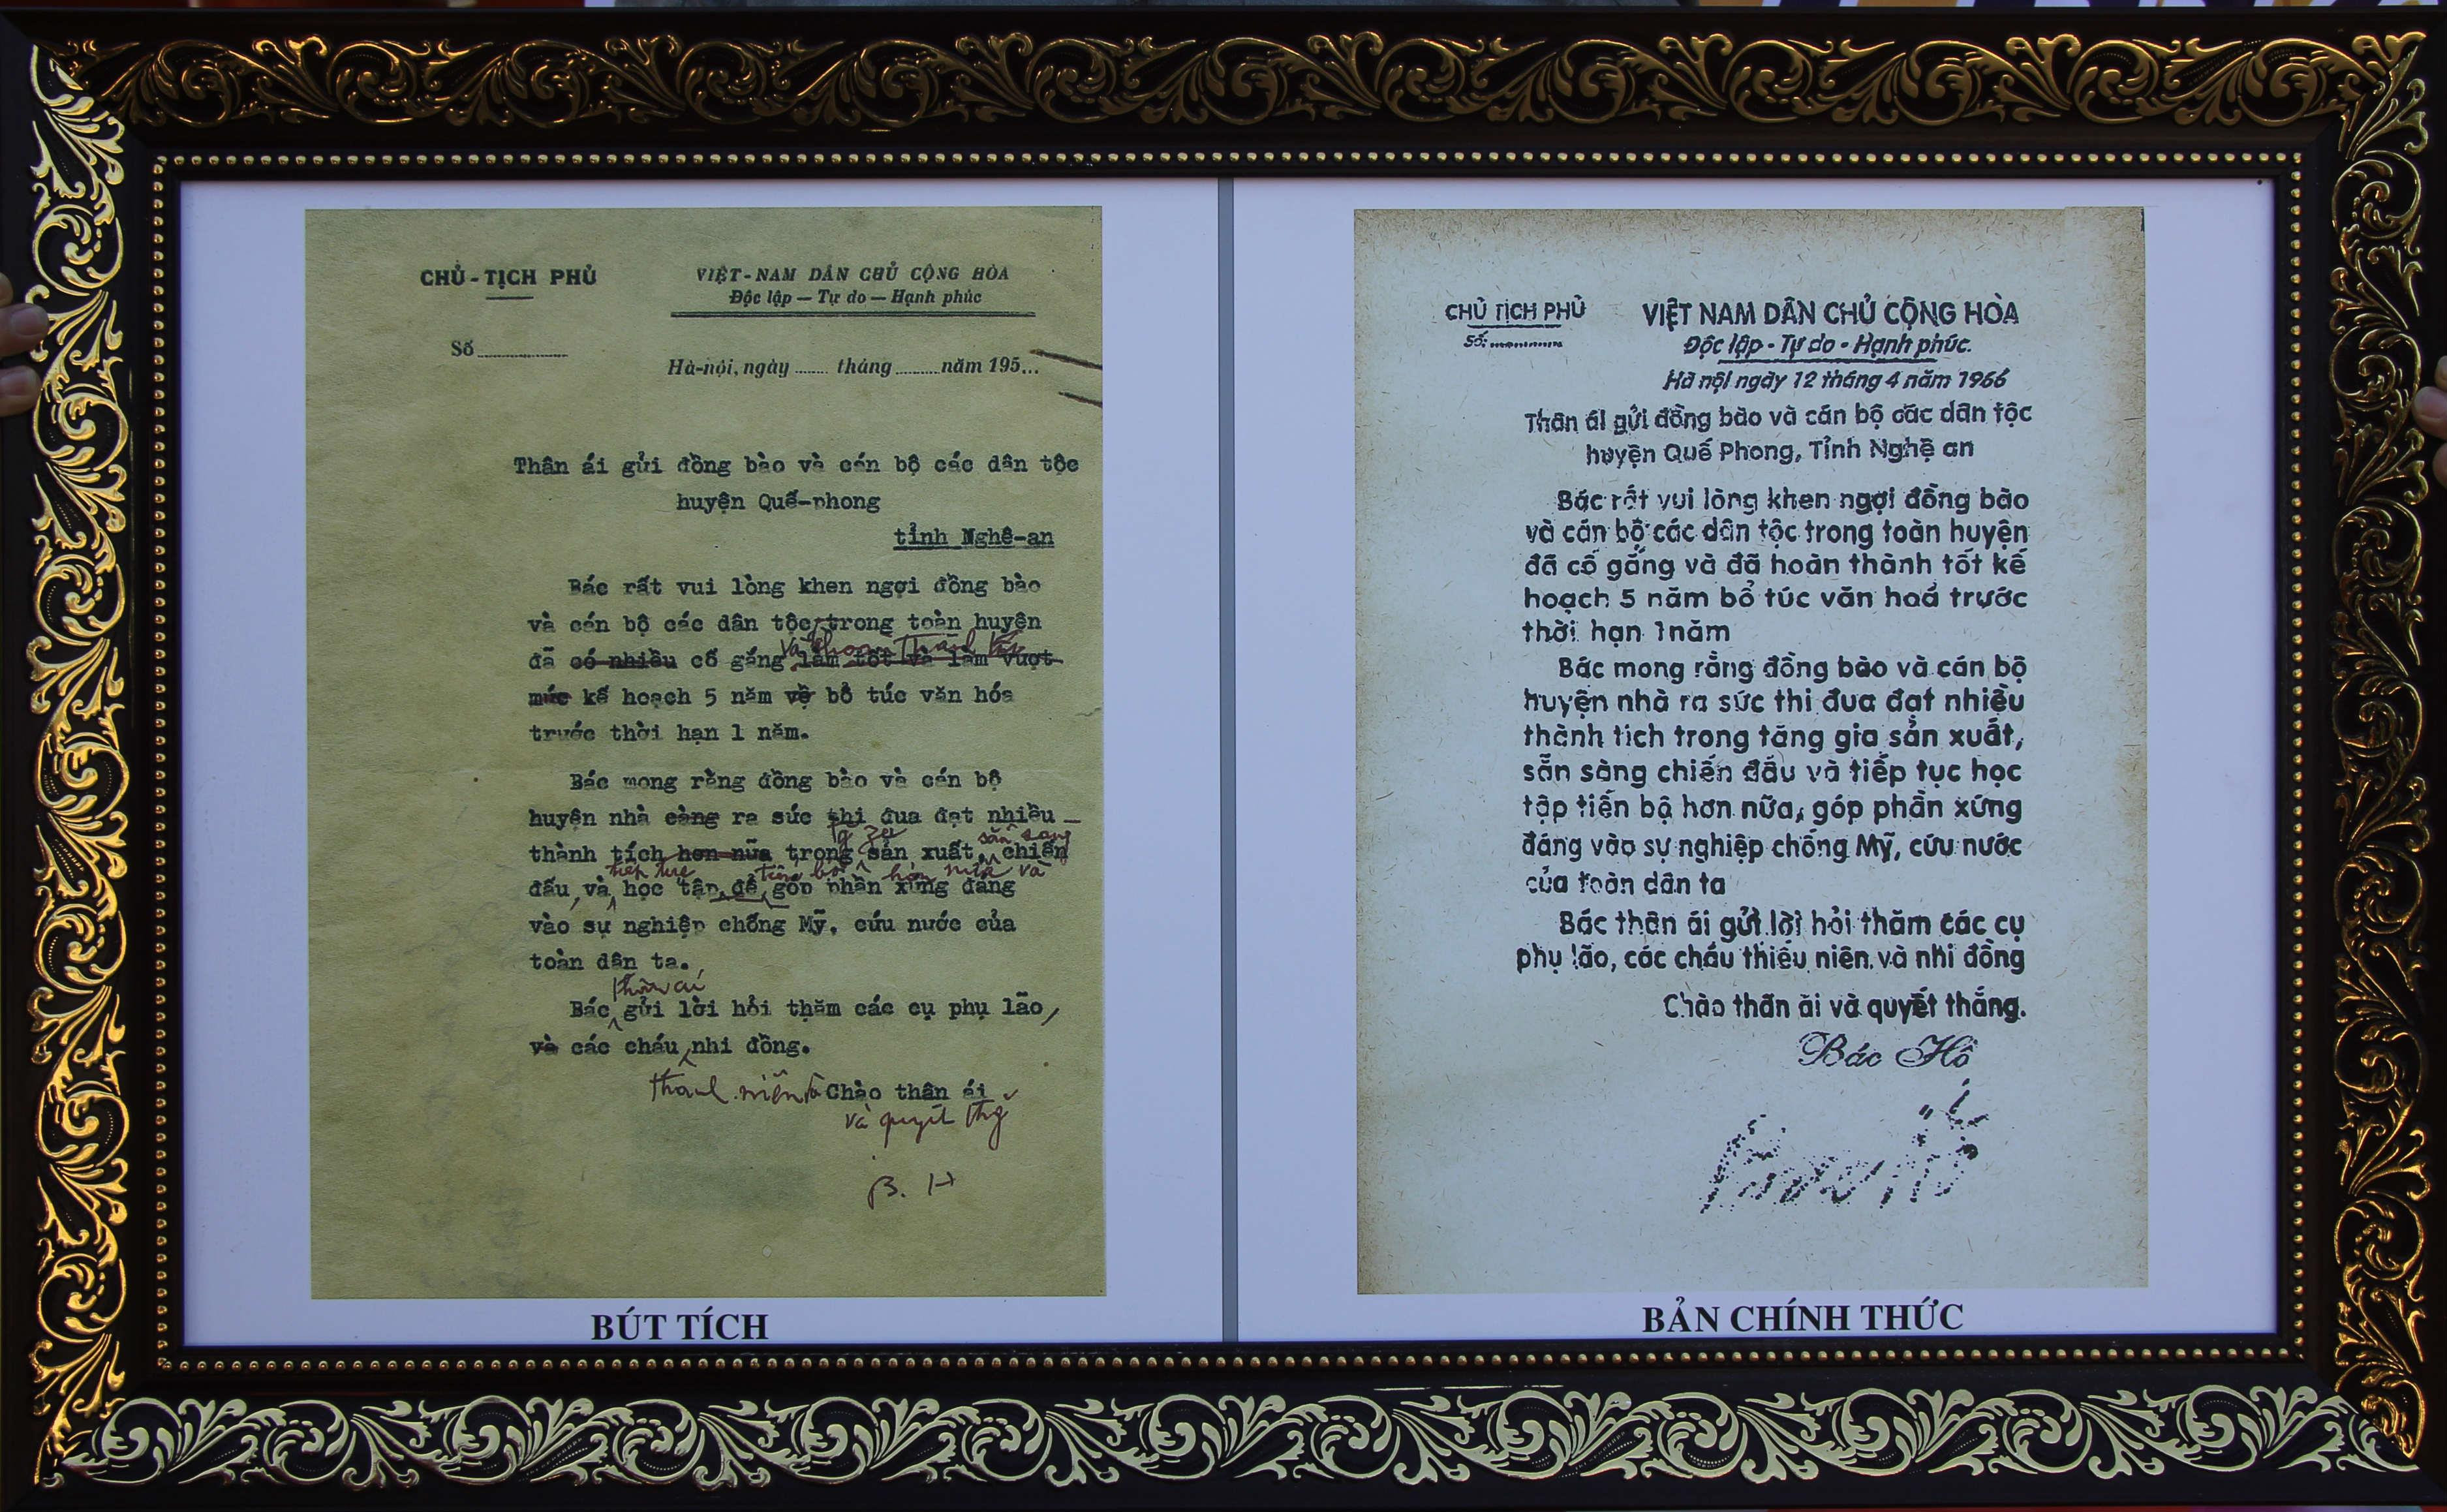 CHỦ - TỊCH PHỦ
VIỆT - NAM DÂN CHỦ CỘNG HÒA
Độc lập — Tự do — Hạnh phúc
Số ..................
Hà-nội, ngày ....... tháng ......... năm 195...
Thân ái gửi đồng bào và cán bộ các dân tộc
huyện Quế-phong
tỉnh Nghê-an
Bác rất vui lòng khen ngợi đồng bào
và cán bộ các dân tộc trong toàn huyện
và hoàn thành tốt
đã có nhiều cố gắng làm tốt và làm vượt
mức kế hoạch 5 năm về bổ túc văn hóa
trước thời hạn 1 năm.
Bác mong rằng đồng bào và cán bộ
huyện nhà càng ra sức thi đua đạt nhiều
sẵn sàng
thành tích hơn nữa trong sản xuất, chiến
tiếp tục tiến bộ hơn nữa và
đấu, và học tập, để góp phần xứng đáng
vào sự nghiệp chống Mỹ, cứu nước của
toàn dân ta.
thân ái
Bác gửi lời hỏi thăm các cụ phụ lão,
và các cháu nhi đồng.
thanh niên và Chào thân ái
và quyết thắng
B. H
BÚT TÍCH
CHỦ TỊCH PHỦ
VIỆT NAM DÂN CHỦ CỘNG HÒA
Số: ............
Độc lập - Tự do - Hạnh phúc.
Hà nội ngày 12 tháng 4 năm 1966
Thân ái gửi đồng bào và cán bộ các dân tộc
huyện Quế Phong, Tỉnh Nghệ an
Bác rất vui lòng khen ngợi đồng bào
và cán bộ các dân tộc trong toàn huyện
đã cố gắng và đã hoàn thành tốt kế
hoạch 5 năm bổ túc văn hoá trước
thời hạn 1năm
Bác mong rằng đồng bào và cán bộ
huyện nhà ra sức thi đua đạt nhiều
thành tích trong tăng gia sản xuất,
sẵn sàng chiến đấu và tiếp tục học
tập tiến bộ hơn nữa, góp phần xứng
đáng vào sự nghiệp chống Mỹ, cứu nước
của toàn dân ta
Bác thân ái gửi lời hỏi thăm các cụ
phụ lão, các cháu thiếu niên và nhi đồng
Chào thân ái và quyết thắng.
Bác Hồ
BẢN CHÍNH THỨC